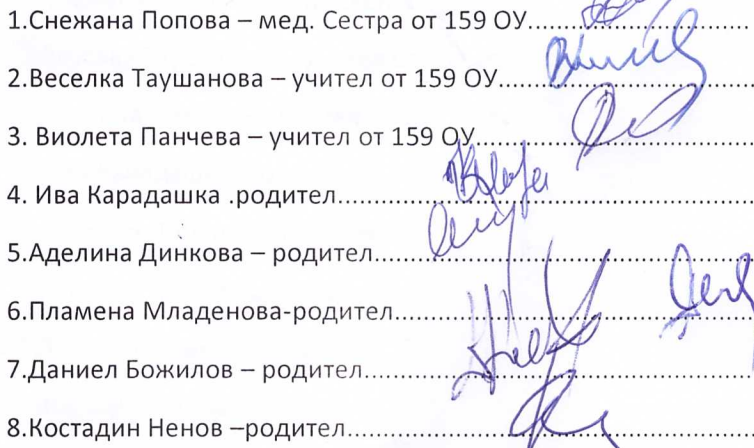 1.Снежана Попова – мед. Сестра от 159 ОУ......................
2.Веселка Таушанова – учител от 159 ОУ.........................
3. Виолета Панчева – учител от 159 ОУ............................
4. Ива Карадашка .родител................................................
5.Аделина Динкова – родител............................................
6.Пламена Младенова-родител.........................................
7.Даниел Божилов – родител.............................................
8.Костадин Ненов –родител...............................................